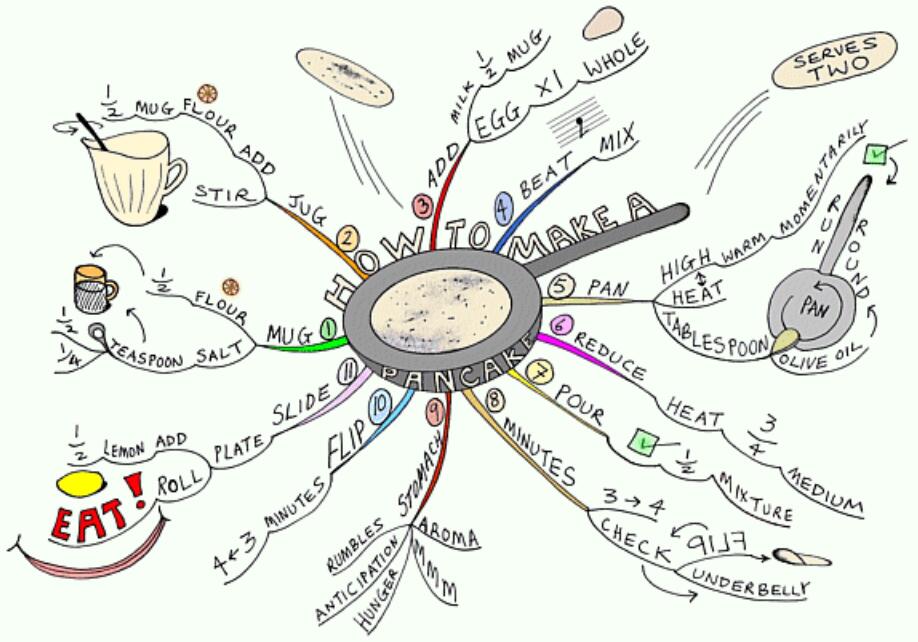 HOW TO MAKE A
PANCAKE
SERVES
TWO
1 MUG
1/2 FLOUR
SALT
TEASPOON
1/2
1/4
2 JUG
ADD
FLOUR
MUG
1/2
STIR
3 ADD
MILK 1/2 MUG
EGG X1 WHOLE
4 BEAT MIX
5 PAN
HIGH
HEAT
WARM MOMENTARILY
TABLESPOON
OLIVE OIL
PAN
RUN ROUND
6 REDUCE
HEAT
3/4
MEDIUM
7 POUR
1/2
MIXTURE
8 MINUTES
3 → 4
CHECK
FLIP
UNDERBELLY
9 STOMACH
RUMBLES
ANTICIPATION
HUNGER
MMM
AROMA
10 FLIP
MINUTES
4 ← 3
11 SLIDE
PLATE
ADD
LEMON
1/2
ROLL
EAT!